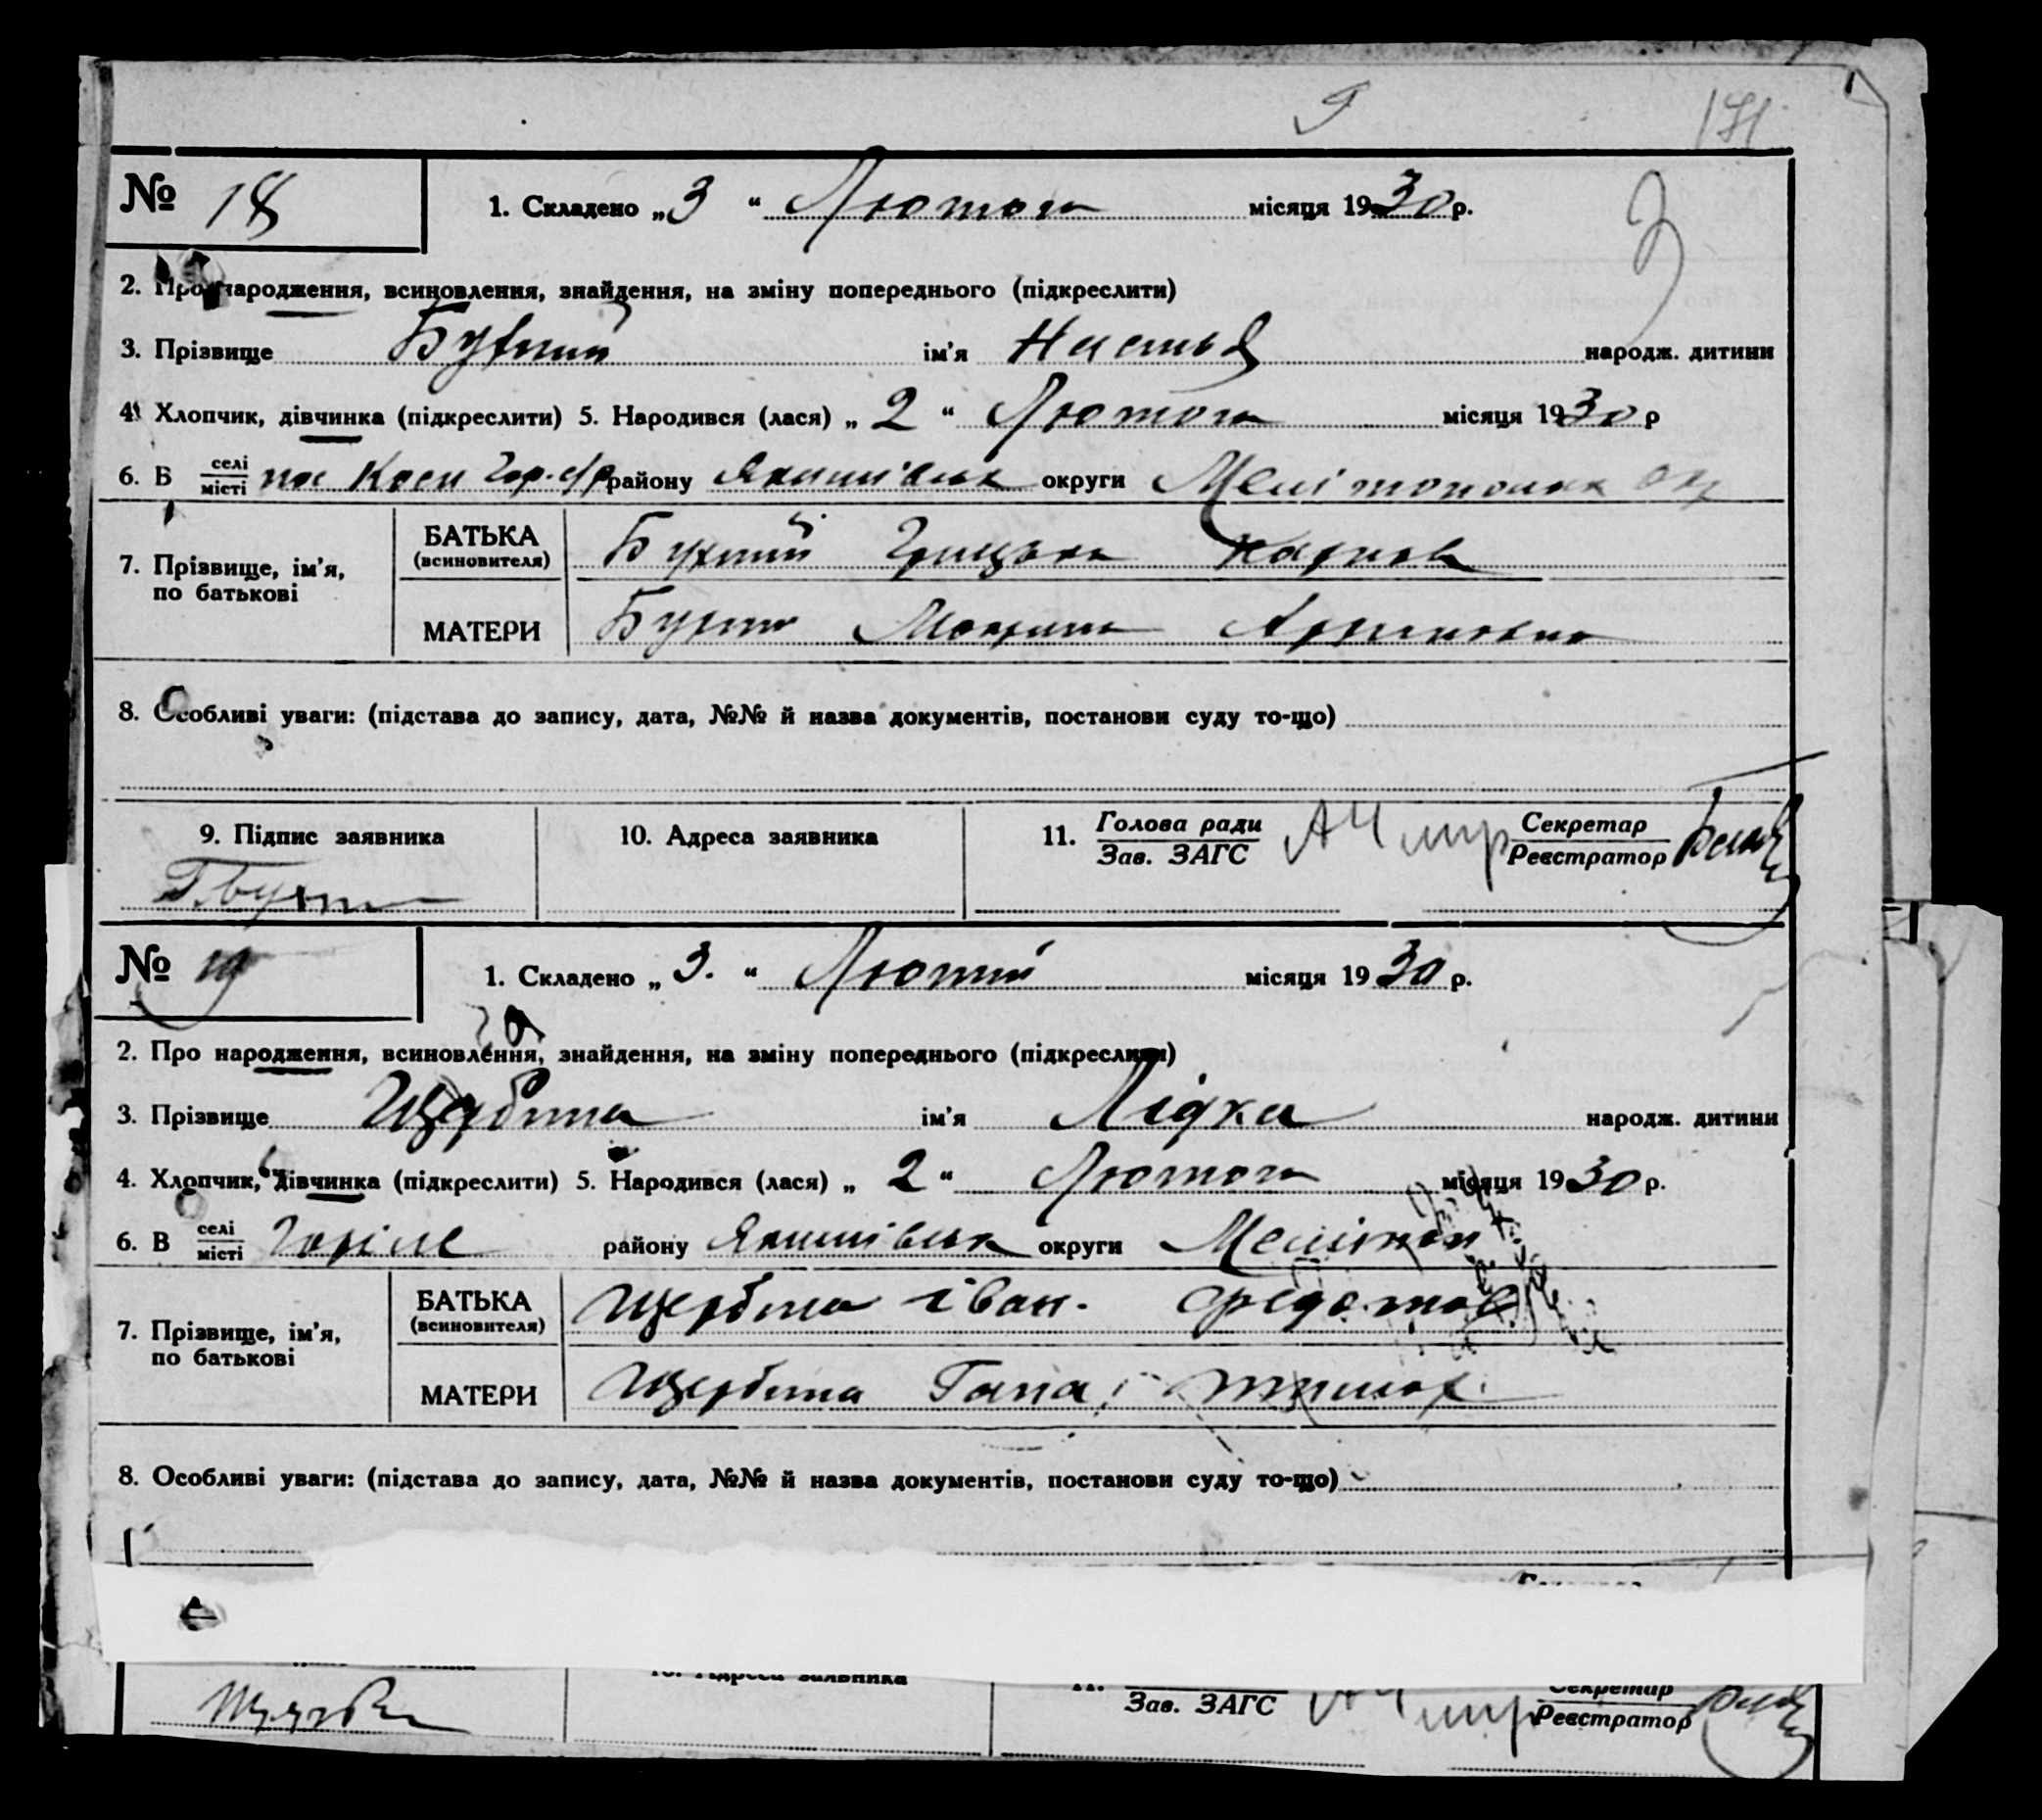 171
№ 18
1. Складено „ 3 “ Лютого місяця 1930 р.
2. Про народження, всиновлення, знайдення, на зміну попереднього (підкреслити)
3. Прізвище ім'я Настя народж. дитини
4. Хлопчик, дівчинка (підкреслити) 5. Народився (лася) „ 2 “ Лютого місяця 1930 р
6. В селі/місті пос Коси Гор. с/р району Якимівськ округи Мелітопольск окр
7. Прізвище, ім'я, по батькові
БАТЬКА (всиновителя) Грицько Карпов
МАТЕРИ
8. Особливі уваги: (підстава до запису, дата, №№ й назва документів, постанови суду то-що)
9. Підпис заявника 10. Адреса заявника 11. Голова ради/Зав. ЗАГС Секретар/Реєстратор
№ 19
1. Складено „ 3. “ Лютий місяця 1930 р.
2. Про народження, всиновлення, знайдення, на зміну попереднього (підкреслити)
3. Прізвище Щербина ім'я Лідка народж. дитини
4. Хлопчик, дівчинка (підкреслити) 5. Народився (лася) „ 2 “ Лютого місяця 1930 р.
6. В селі/місті Горіле району Якимівськ округи Мелітоп
7. Прізвище, ім'я, по батькові
БАТЬКА (всиновителя) Щербина Іван. Федотов
МАТЕРИ Щербина Гапа
8. Особливі уваги: (підстава до запису, дата, №№ й назва документів, постанови суду то-що)
10. Адреса заявника Зав. ЗАГС Секретар/Реєстратор